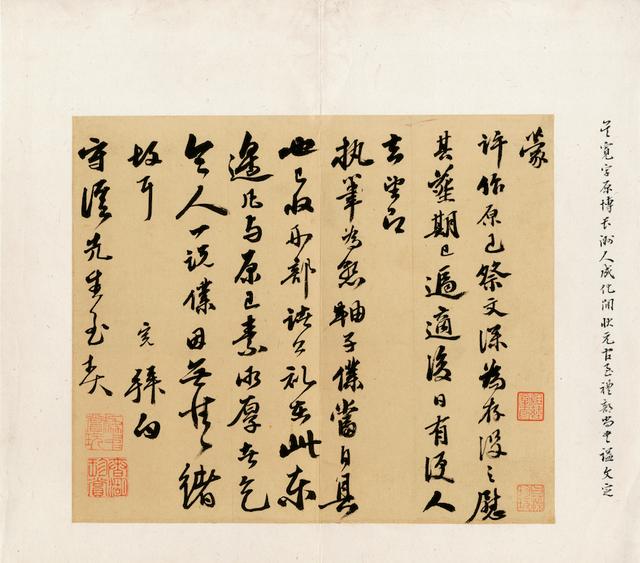 吳寬字原博長洲人成化間狀元官至禮部尚書謚文定
蒙
許作原已祭文深為存沒之慰
其葬期已逼適後日有便人
去望即
執筆為懇軸子僕當自具
也已收刑部諸公礼在此東
邊凡與原已素所厚者乞
令人一說僕因無情緒
故耳 寬拜白
守溪先生至契